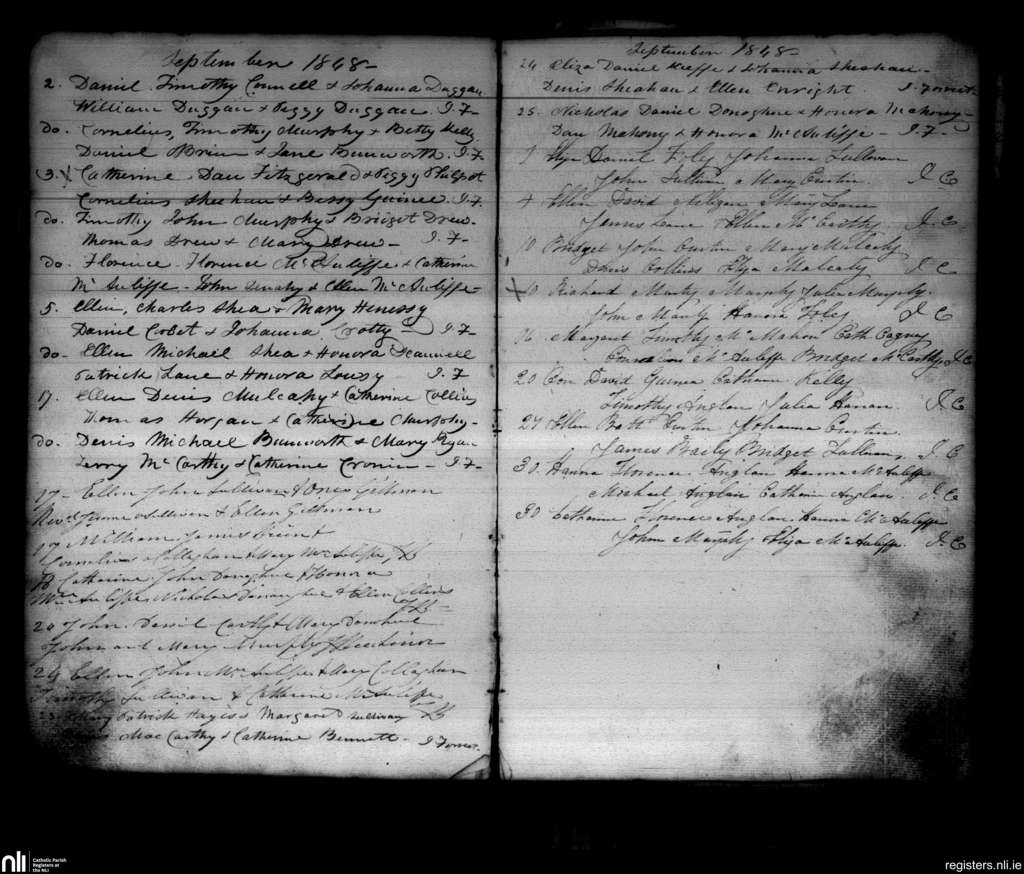 September 1848-
2. Daniel Timothy Connell & Johanna Duggan
William Duggan & Peggy Duggan J. F-
do. Cornelius, Timothy Murphy & Betty Kelly
Daniel OBrien & Jane Bunworth. J. F
3. X Catherine. Dan Fitzgerald & Peggy Philpot
Cornelius Sheehan & Bessy Guinee. J. F-
do. Timothy John Murphy & Bridget Drew.
Thomas Drew & Mary Drew- J. F-
do. Florence. Florence McAuliffe & Catherine
McAuliffe- John & Ellen McAuliffe-
5. Ellen, Charles Shea & Mary Henessy
Daniel & Johanna Crotty- J. F-
do- Ellen Michael Shea & Honora Scannell
Patrick Lane & Honora - J. F
17. Ellen Denis Mulcahy & Catherine Collins
Thomas Horgan & Catherine Murphy-
do. Denis Michael Bunworth & Mary Ryan
Jerry McCarthy & Catherine Cronin- J. F-
17- Ellen John Sullivan &
Revd. Sullivan & Ellen
17 William James
Cornelius Callaghan & Mary McAuliffe
18 Catherine John Donoghue & Honora
McAuliffe Nicholas Donoghue & Ellen Collins
20 John. Daniel Carthy & Mary
John and Mary Murphy
24 Ellen John McAuliffe & Mary Callaghan
Timothy Sullivan & Catherine McAuliffe
Mary Patrick Hayes & Margaret Sullivan
MacCarthy & Catherine Bennett- J Forrest.
September 1848-
24 Eliza Daniel Keeffe & Johanna Sheahan-
Denis Sheahan & Ellen Enright. J. Forrest.
25. Nicholas Daniel Donoghue & Honora Mahony-
Dan Mahony & Honora McAuliffe- J. F-
Eliza Daniel Foley Johanna Sullivan
John Sullivan Mary Curtin. J. C
4 Ellen David Milligan Mary Lane
James Lane Ellen McCarthy J. C
10 Bridget John Curtin Mary Mulcahy
Denis Collins Eliza Mulcahy J C
X 10 Richard Murphy Julia Murphy.
John Hanora Foley J C
16 Margaret Timothy McMahon Cath
Cornelius McAuliffe Bridget McCarthy J C
20 Con David Guinea Catharine Kelly
Timothy Anglan Julia J. C
27 Ellen Batt Curtin Johanna Curtin
James Bridget Sullivan. J. C
30. Hanna Florence Anglan Hanna McAuliffe
Michael Anglan Catharine Anglan. J. C
30 Catharine Florence Anglan. Hanna McAuliffe
John Murphy Eliza McAuliffe. J. C
nli
Catholic Parish
Registers at
the NLI
registers.nli.ie